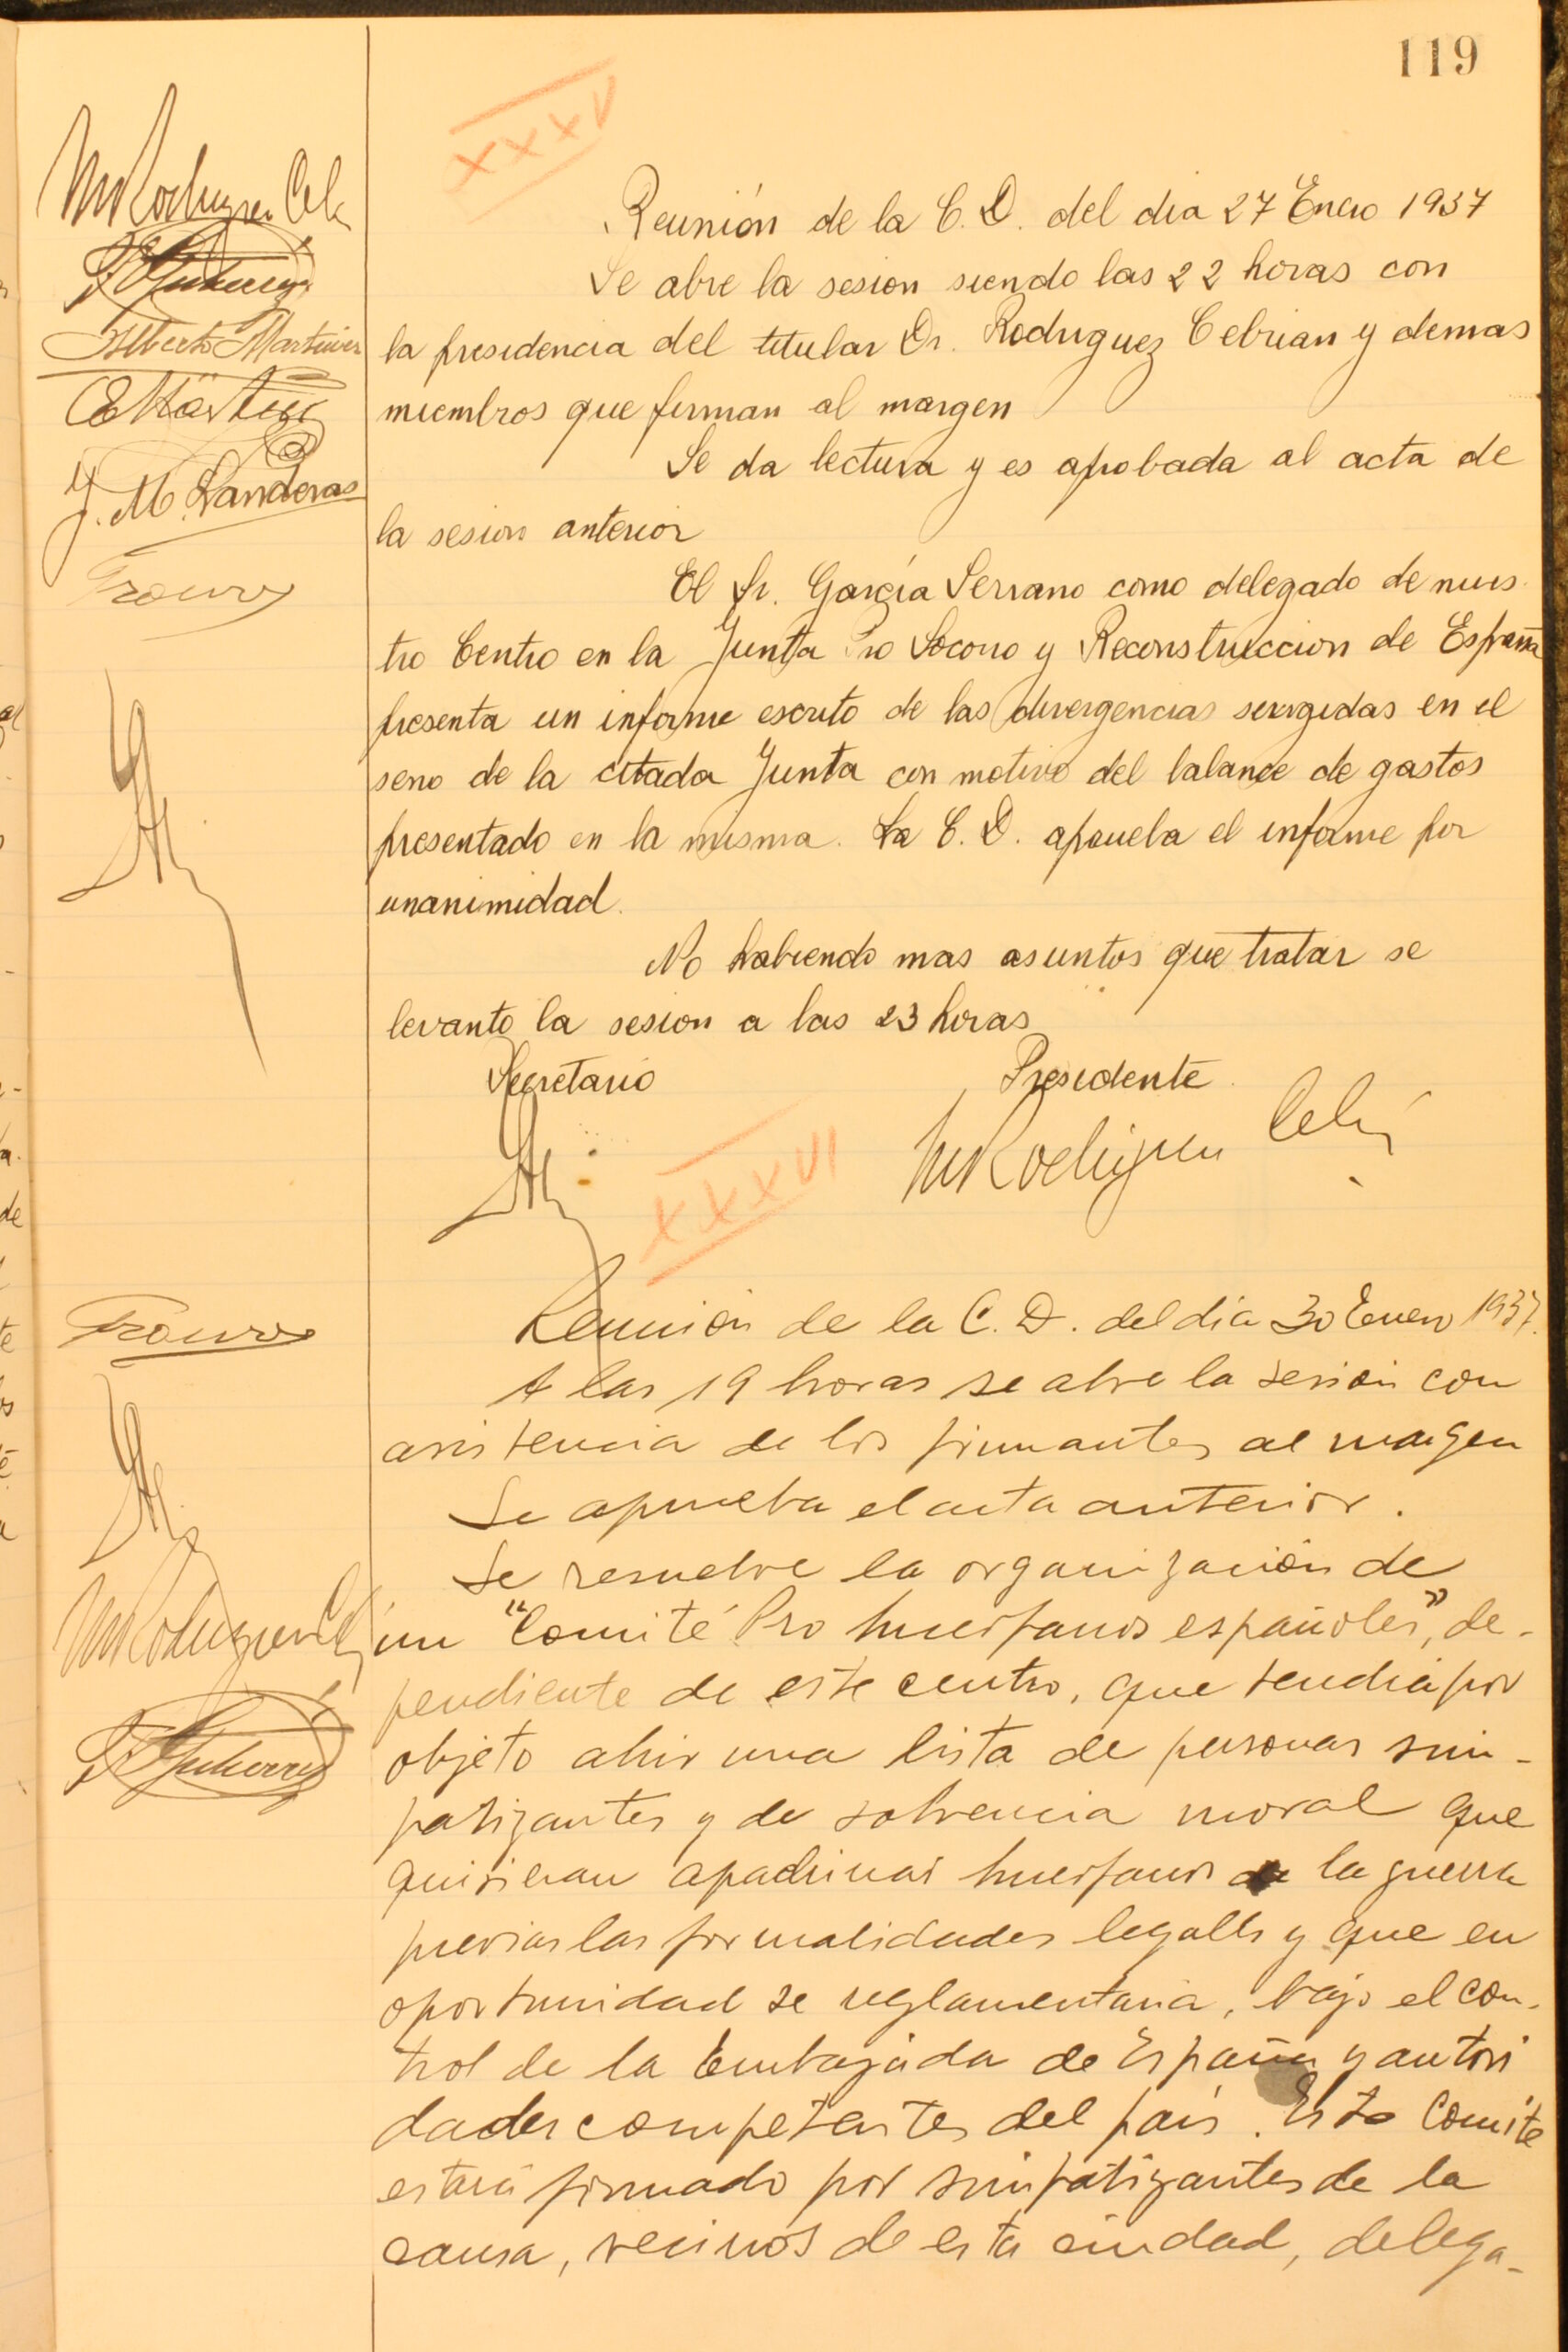 119
XXXV
Reunión de la C. D. del dia 27 Enero 1937
Se abre la sesion siendo las 22 horas con
la presidencia del titular Dr. Rodriguez Cebrian y demas
miembros que firman al margen
Se da lectura y es aprobada al acta de
la sesion anterior
El Sr. García Serrano como delegado de nues-
tro Centro en la Junta Pro Socorro y Reconstruccion de España
presenta un informe escrito de las divergencias surgidas en el
seno de la citada Junta con motivo del balance de gastos
presentado en la misma. La C. D. aprueba el informe por
unanimidad.
No habiendo mas asuntos que tratar se
levanto la sesion a las 23 horas
Secretario Presidente
M Rodriguez Ceb
Alberto Martinez
E Martinez
J. M. Landeras
XXXVI
Reunión de la C. D. del día 30 Enero 1937.
A las 19 horas se abre la sesión con
asistencia de los firmantes al margen
Se aprueba el acta anterior.
Se resuelve la organización de
un "Comité Pro huerfanos españoles", de-
pendiente de este centro, que tendría por
objeto abrir una lista de personas sim-
patizantes y de solvencia moral que
quisieran apadrinar huerfanos de la guerra
previas las formalidades legales y que en
oportunidad se reglamentaria, bajo el con-
trol de la Embajada de España y autori
dades competentes del país. Este Comité
estará formado por simpatizantes de la
causa, vecinos de esta ciudad, delega-